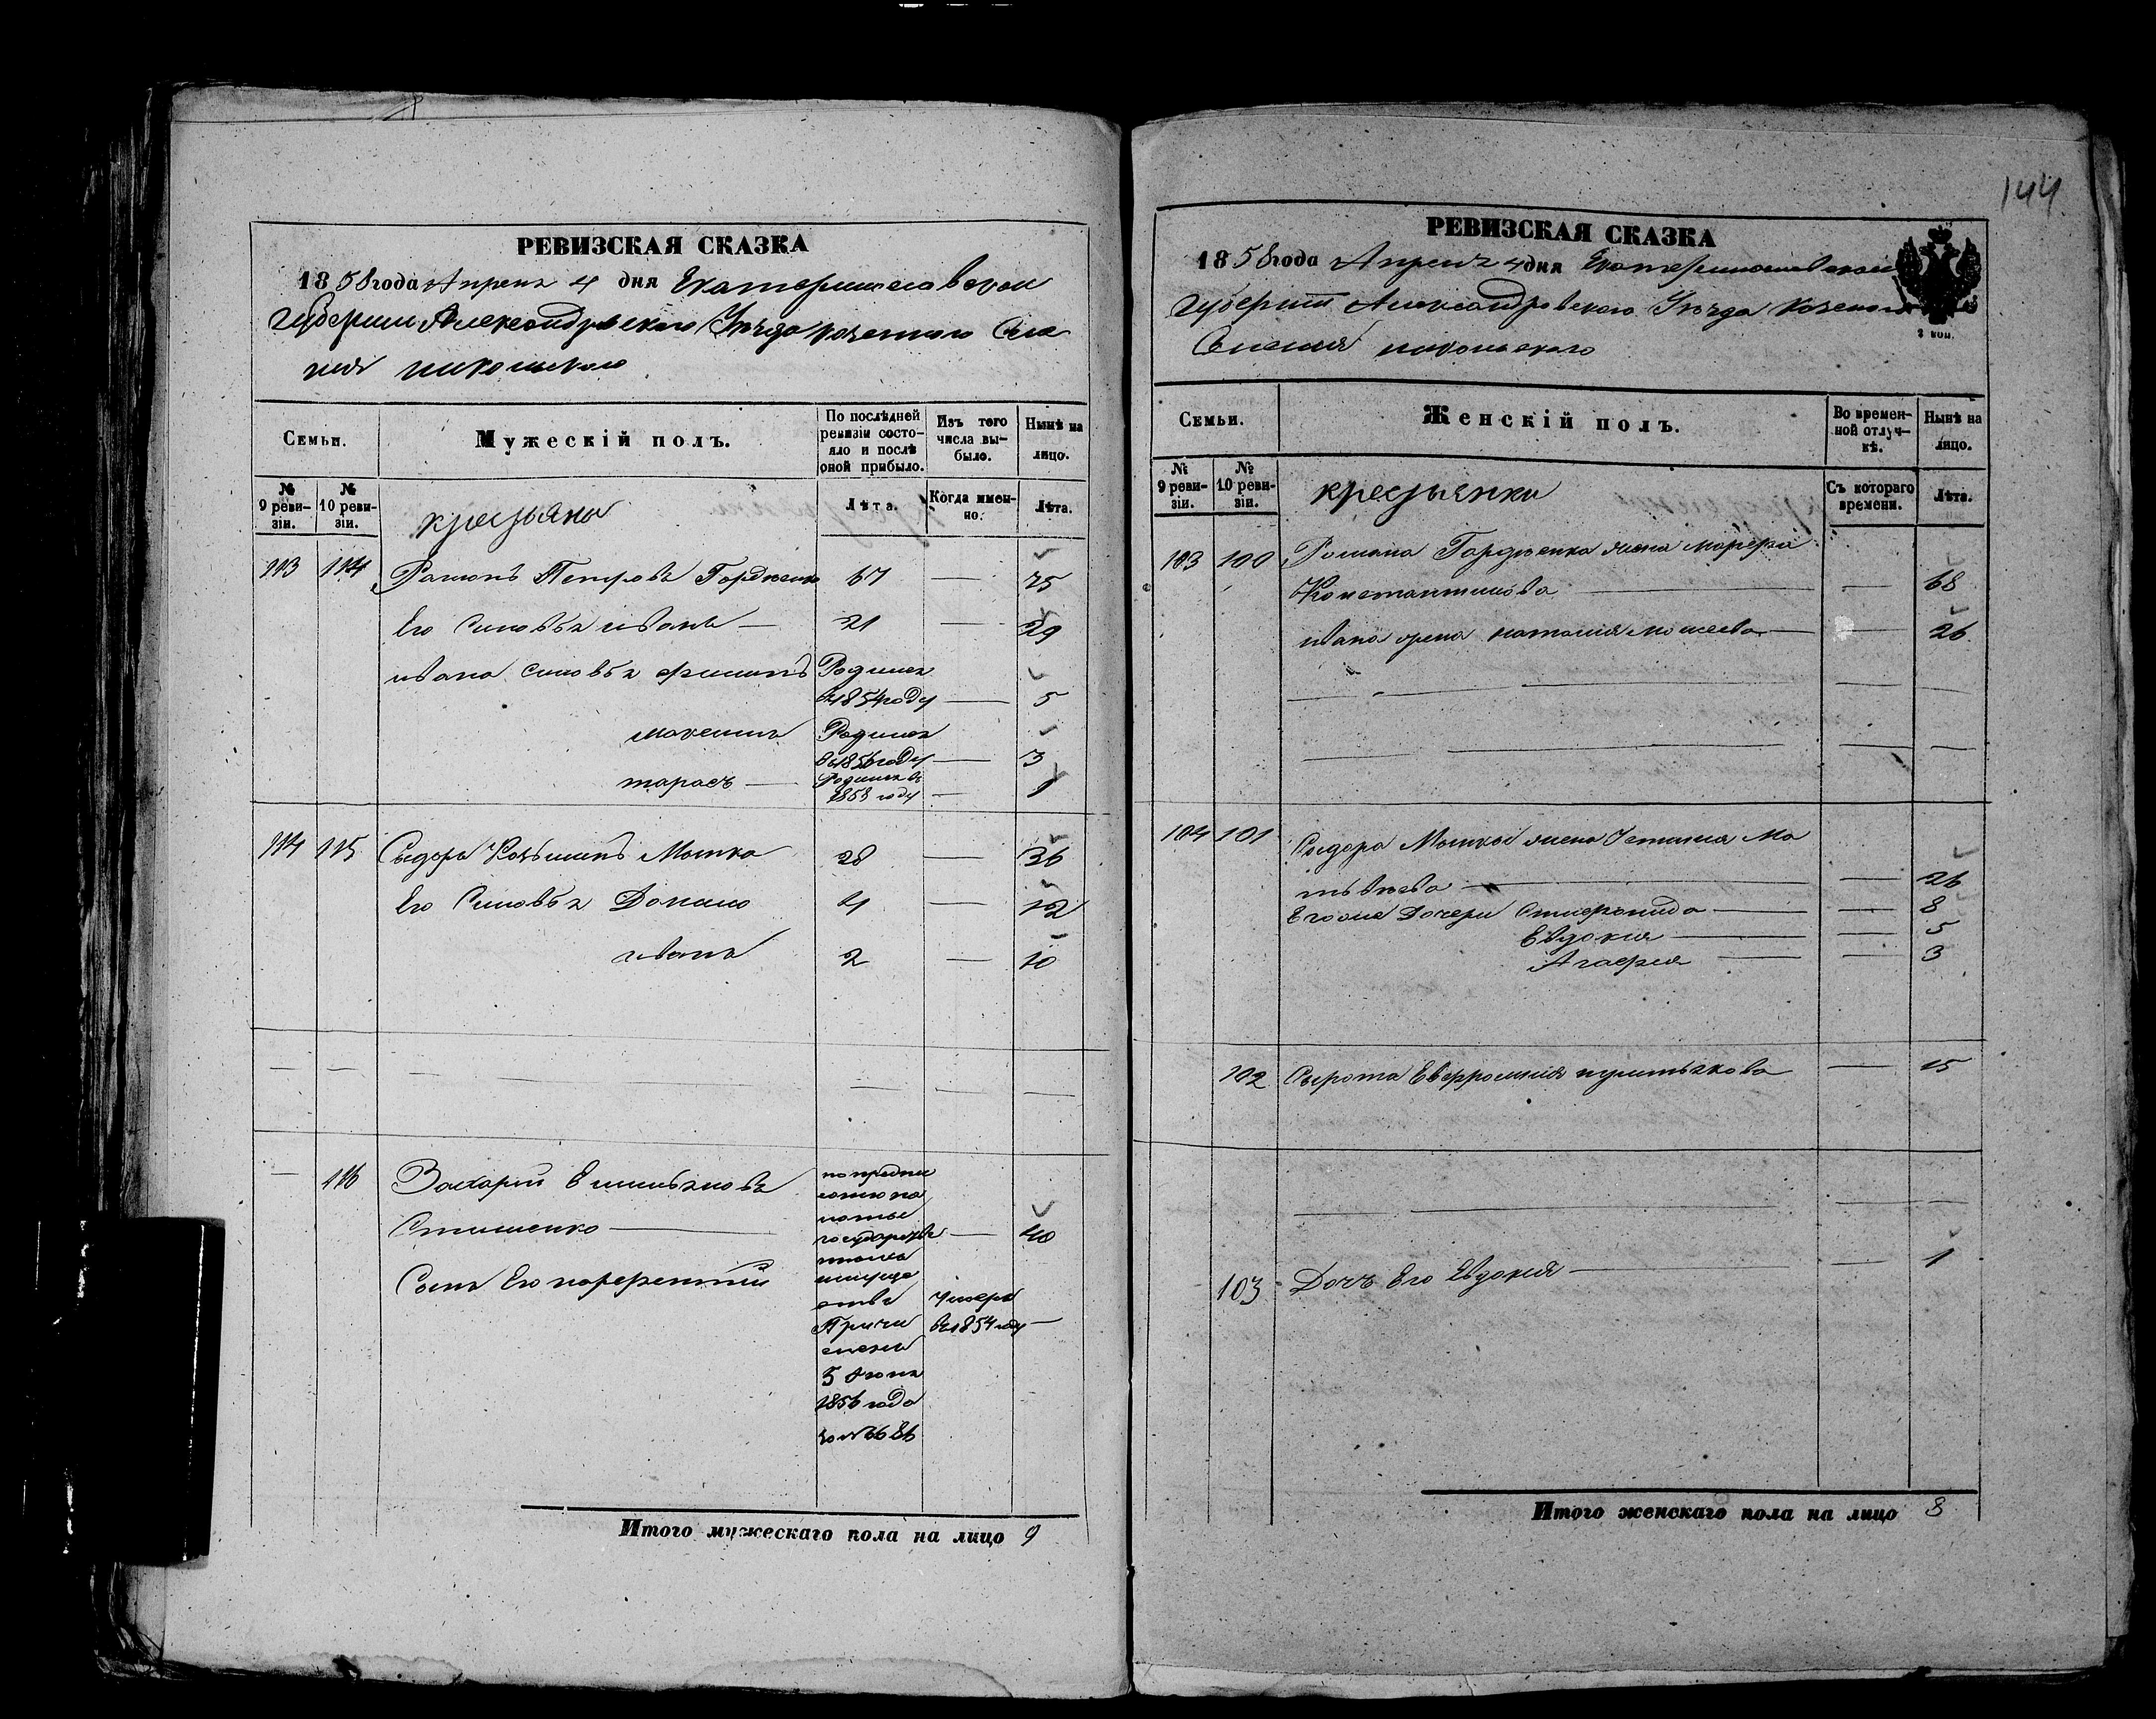 144
РЕВИЗСКАЯ СКАЗКА
1858 года Апреля 4 дня Екатеринославской
Губернии Александровского Уезда казенного Селе
ния никольского
Семьи.
Мужескій полъ.
По послѣдней ревизіи состояло и послѣ оной прибыло.
Изъ того числа выбыло.
Нынѣ на лицо.
№ 9 ревизіи.
№ 10 ревизіи.
крестьяне
Лѣта.
Когда именно.
Лѣта.
113 114 Романъ Петровъ Гордиенко 67 — 75
Его Сыновья иванъ — 21 — 29
ивана сыновья филипъ Родился
въ 1854 году — 5
максимъ Родился
въ 1856 году — 3
тарасъ — Родился въ
1858 году — 1
114 115 Сидоръ Козьминъ Мошка 28 — 36
Его Сыновья Данило 4 — 12
иванъ 2 — 10
— 116 Захарий Емильяновъ
Стишенко — 40
Сынъ Его
по предпи
санию па
латы
государстве
нныхъ
имуще
ствъ
Причи
сленъ
5 июня
1856 года
за № 6686
Умеръ
въ 1854 году —
Итого мужескаго пола на лицо 9
РЕВИЗСКАЯ СКАЗКА
1858 года Апреля 4 дня Екатеринославской
Губернии Александровского Уезда казеного
Селения никольского
2 коп.
Семьи.
Женскій полъ.
Во временной отлучкѣ.
Нынѣ на лицо.
№ 9 ревизіи.
№ 10 ревизіи.
крестьянки
Съ котораго времени.
Лѣта.
103 100 Романа Гордиенка жена Марфа
Константинова — — 68
ивана жена наталия Мосеева — — 26
104 101 Сидора Мошки жена Устиния Ма
твѣева — — 26
Его же Дочери — — 8
Евдокия — — 5
Агафия — — 3
102 Сирота Евфросиния — 15
103 Дочь Его Евдокия — — 1
Итого женскаго пола на лицо 8